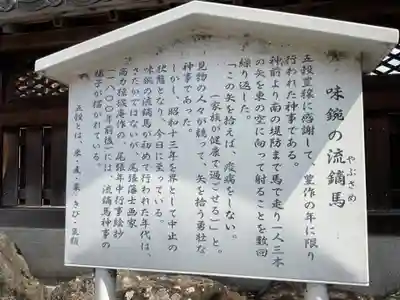 味鋺の流鏑馬
やぶさめ
五穀豊穣に感謝して、豊作の年に限り
行われた神事である。
神前より南の堤防まで馬で走り一人三本
の矢を東の空に向って射ることを数回
繰り返した。
「この矢を拾えば、疫病をしない。
(一家族が健康で過ごせる)」と。
見物の人々が競って、矢を拾う勇壮な
神事であった。
しかし、昭和十三年を界として中止の
状態となり、今日に至っている。
味鋺の流鏑馬が初めて行われた年代は、
さだかではないが、尾張藩士画家
高力猿猴庵作の、尾張年中行事絵抄
(一八〇〇年前後)には、流鏑馬神事の
様子が描かれている。
五穀とは、米・麦・粟・きび・豆類